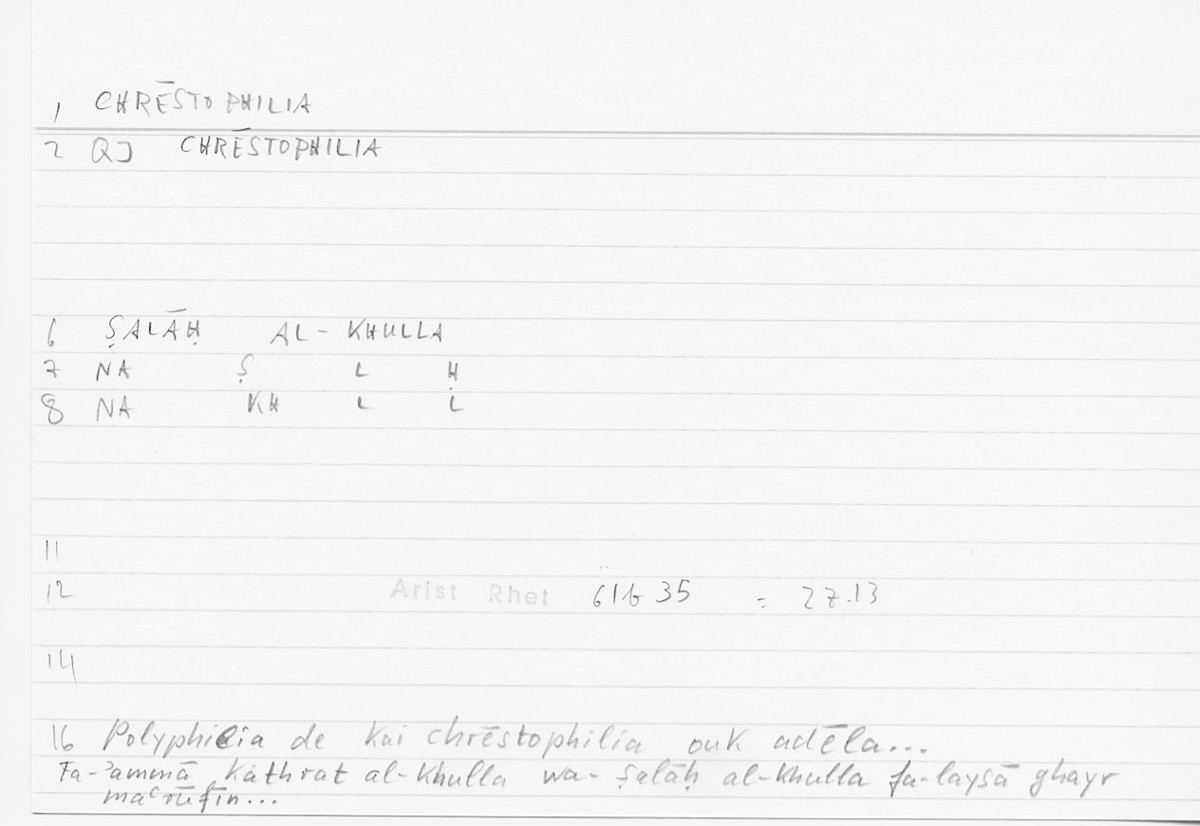 1 CHRĒSTOPHILIA
2 QJ CHRĒSTOPHILIA
6 ṢALĀḤ AL-KHULLA
7 NA Ṣ L Ḥ
8 NA KH L L
11
12 Arist Rhet 61b35 = 27.13
14
16 Polyphilia de kai chrēstophilia ouk adēla...
Fa-ʾammā kathrat al-khulla wa-ṣalāḥ al-khulla fa-laysā ghayr
maʿrūfīn...